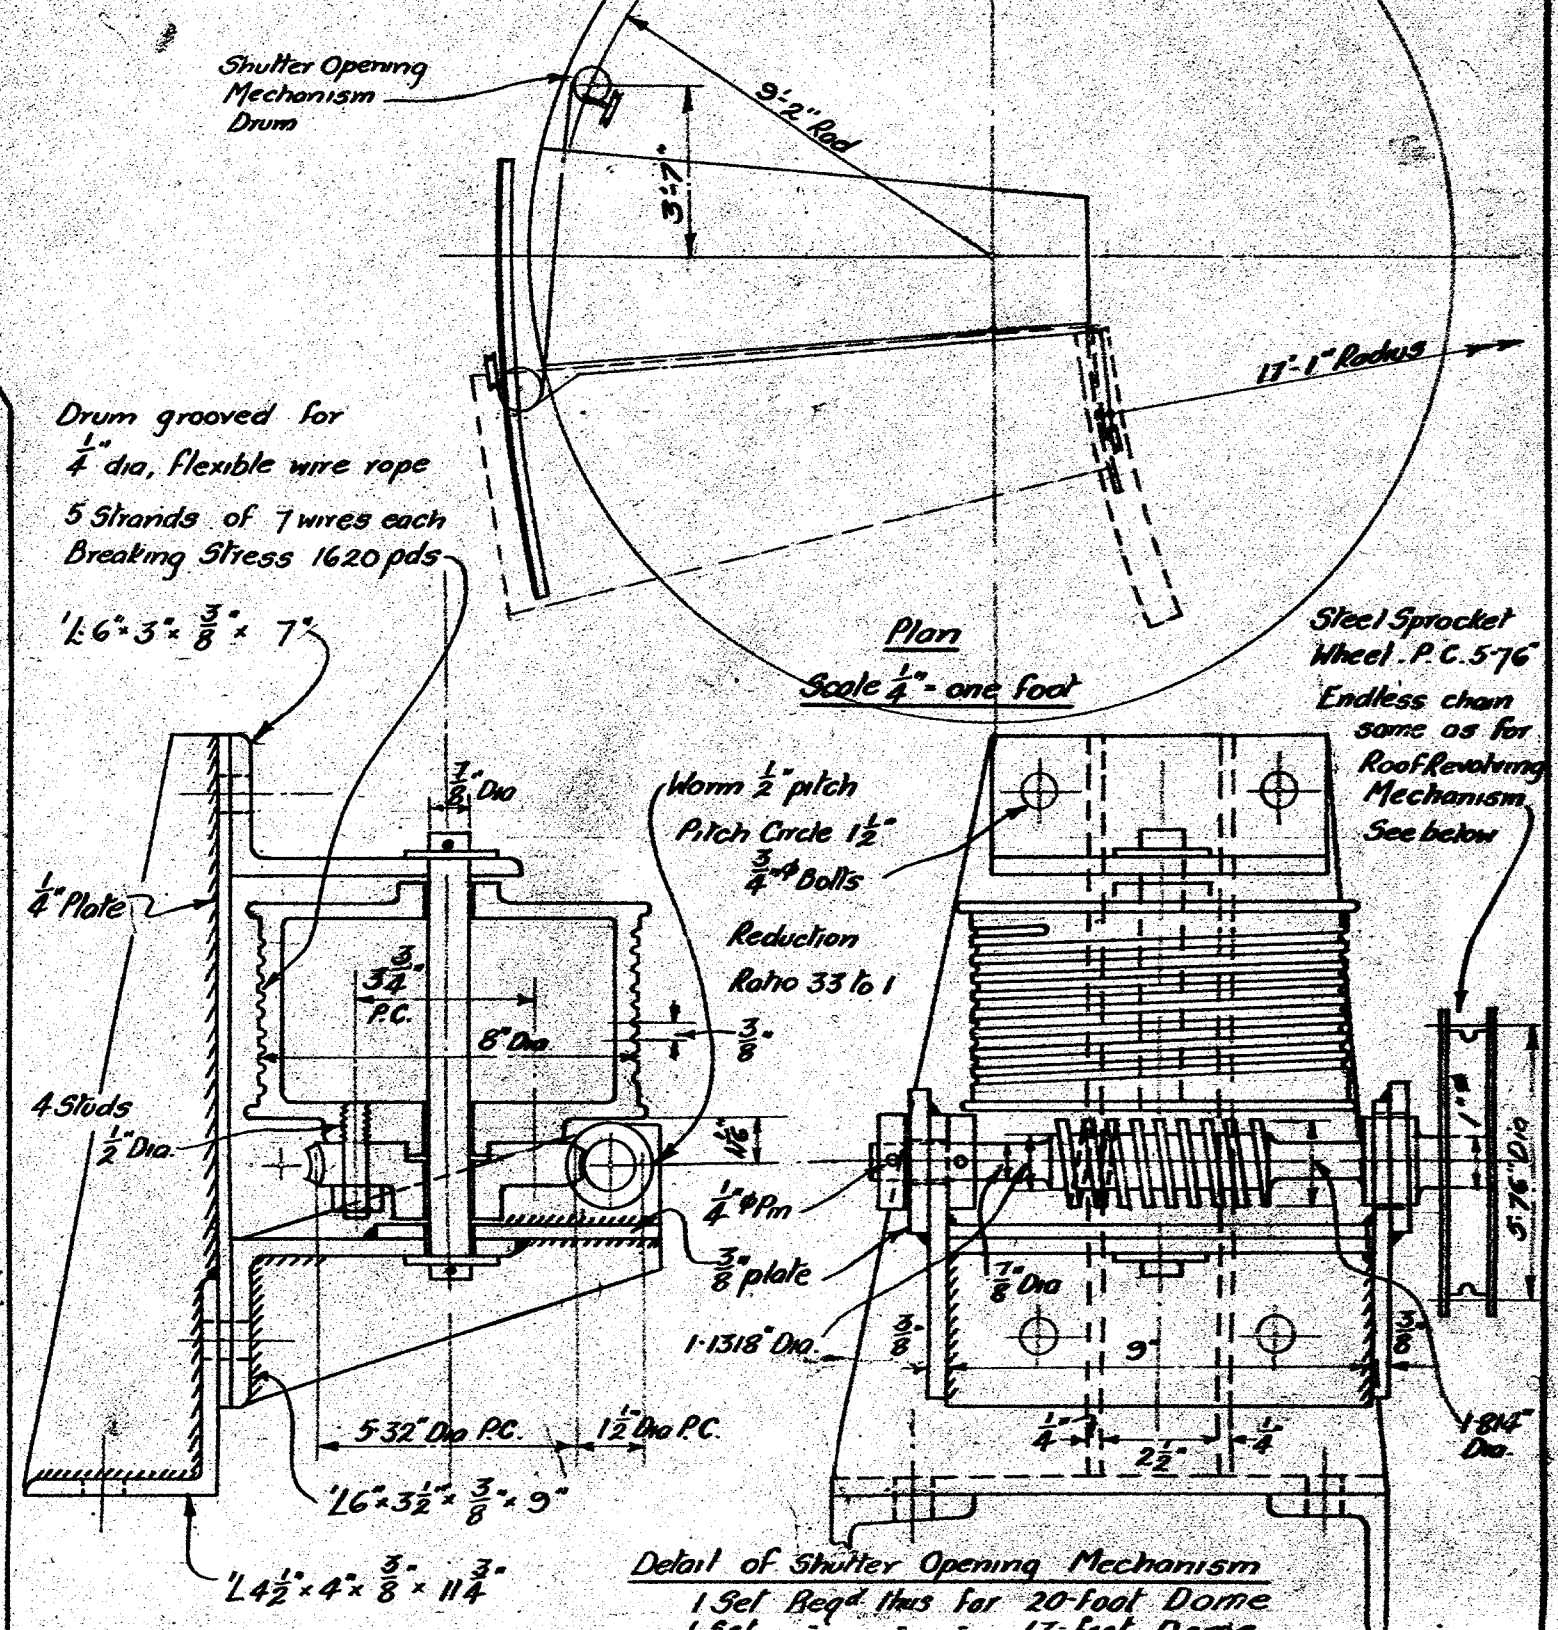 Shutter Opening
Mechanism
Drum
9'-2" Rad
3'-7"
17'-1" Radius
Drum grooved for
1/4" dia, flexible wire rope
5 Strands of 7 wires each
Breaking Stress 1620 pds
'L 6" × 3" × 3/8" × 7"
Plan
Scale 1/4" = one foot
Steel Sprocket
Wheel. P.C. 5·76"
Endless chain
same as for
Roof Revolving
Mechanism
See below
7/8" Dia
Worm 1/2" pitch
Pitch Circle 1 1/2"
3/4" φ Bolts
Reduction
Ratio 33 to 1
1/4" Plate
3 3/4"
P.C.
8" Dia
3/8"
4 Studs
1/2" Dia.
1"
5·76" Dia
1/4" φ Pin
3/8" plate
7/8" Dia
1·1318" Dia.
3/8"
9"
3/8"
5·32" Dia P.C.
1 1/2" Dia P.C.
1/4"
2 1/2"
1/4"
1·814"
Dia.
'L 6" × 3 1/2" × 3/8" × 9"
'L 4 1/2" × 4" × 3/8" × 11 3/4"
Detail of Shutter Opening Mechanism
1 Set Reqd thus for 20-foot Dome
1 Set " " " 17-foot Dome